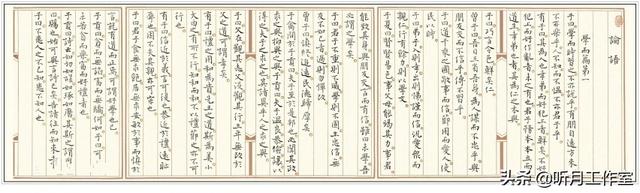 論語
學而篇第一
子曰學而時習之不亦說乎有朋自遠方來
不亦樂乎人不知而不慍不亦君子乎
有子曰其為人也孝弟而好犯上者鮮矣不好
犯上而好作亂者未之有也君子務本本立而
道生孝弟也者其為仁之本與
子曰巧言令色鮮矣仁
曾子曰吾日三省吾身為人謀而不忠乎與
朋友交而不信乎傳不習乎
子曰道千乘之國敬事而信節用而愛人使
民以時
子曰弟子入則孝出則弟謹而信汎愛眾而
親仁行有餘力則以學文
子夏曰賢賢易色事父母能竭其力事君
能致其身與朋友交言而有信雖曰未學吾
必謂之學矣
子曰君子不重則不威學則不固主忠信無
友不如己者過則勿憚改
曾子曰慎終追遠民德歸厚矣
子禽問於子貢曰夫子至於是邦也必聞其政
求之與抑與之與子貢曰夫子溫良恭儉讓以
得之夫子之求之也其諸異乎人之求之與
子曰父在觀其志父沒觀其行三年無改於
父之道可謂孝矣
有子曰禮之用和為貴先王之道斯為美小
大由之有所不行知和而和不以禮節之亦不可
行也
有子曰信近於義言可復也恭近於禮遠恥
辱也因不失其親亦可宗也
子曰君子食無求飽居無求安敏於事而慎於
言就有道而正焉可謂好學也已
子貢曰貧而無諂富而無驕何如子曰可也
未若貧而樂富而好禮者也
子貢曰詩云如切如磋如琢如磨其斯之謂與
子曰賜也始可與言詩已矣告諸往而知來者
子曰不患人之不己知患不知人也
头条 @听月工作室